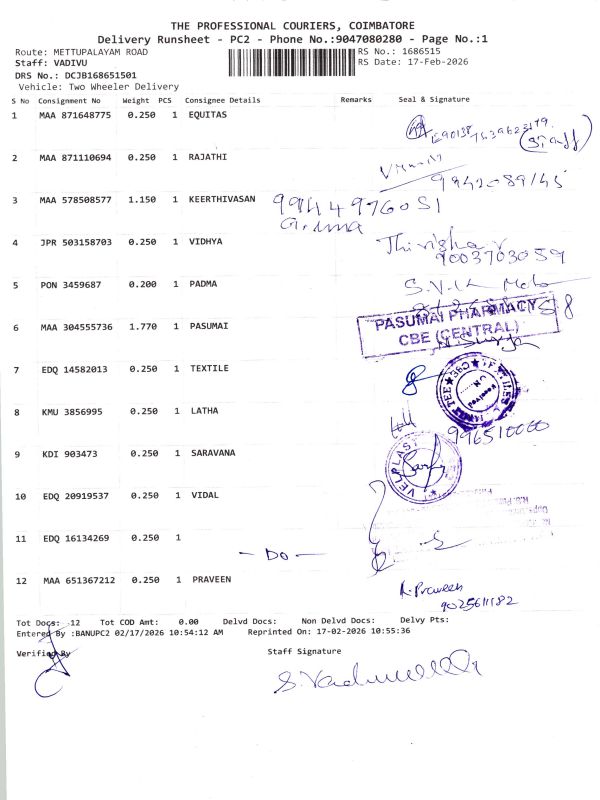 THE PROFESSIONAL COURIERS, COIMBATORE
Delivery Runsheet - PC2 - Phone No.:9047080280 - Page No.:1
Route: METTUPALAYAM ROAD
RS No.: 1686515
Staff: VADIVU
RS Date: 17-Feb-2026
DRS No.: DCJB168651501
Vehicle: Two Wheeler Delivery
S No Consignment No Weight PCS Consignee Details Remarks Seal & Signature
1 MAA 871648775 0.250 1 EQUITAS
(Staff)
2 MAA 871110694 0.250 1 RAJATHI
9842089145
3 MAA 578508577 1.150 1 KEERTHIVASAN
9944976051
4 JPR 503158703 0.250 1 VIDHYA
9003703059
5 PON 3459687 0.200 1 PADMA
6 MAA 304555736 1.770 1 PASUMAI
PASUMAI PHARMACY
CBE (CENTRAL)
7 EDQ 14582013 0.250 1 TEXTILE
8 KMU 3856995 0.250 1 LATHA
996510000
9 KDI 903473 0.250 1 SARAVANA
VELPLAST
10 EDQ 20919537 0.250 1 VIDAL
11 EDQ 16134269 0.250 1
- Do -
12 MAA 651367212 0.250 1 PRAVEEN
K. Praveen
9025611182
Tot Docs: 12 Tot COD Amt: 0.00 Delvd Docs: Non Delvd Docs: Delvy Pts:
Entered By :BANUPC2 02/17/2026 10:54:12 AM Reprinted On: 17-02-2026 10:55:36
Verified By
Staff Signature